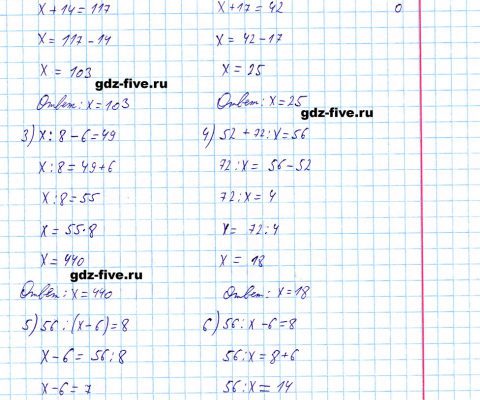 x + 14 = 117
x = 117 - 14
x = 103
gdz-five.ru
Ответ: x = 103
3) x : 8 - 6 = 49
x : 8 = 49 + 6
x : 8 = 55
x = 55 · 8
x = 440
gdz-five.ru
Ответ: x = 440
5) 56 : (x - 6) = 8
x - 6 = 56 : 8
x - 6 = 7
x + 17 = 42
x = 42 - 17
x = 25
Ответ: x = 25
gdz-five.ru
4) 52 + 72 : x = 56
72 : x = 56 - 52
72 : x = 4
x = 72 : 4
x = 18
Ответ: x = 18
6) 56 : x - 6 = 8
56 : x = 8 + 6
56 : x = 14
0